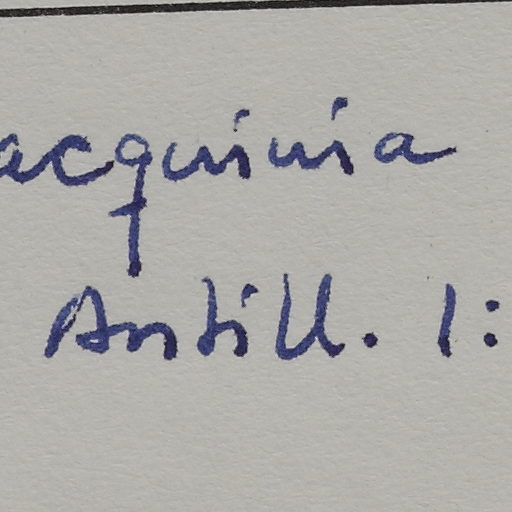 acquinia
Antill. 1: